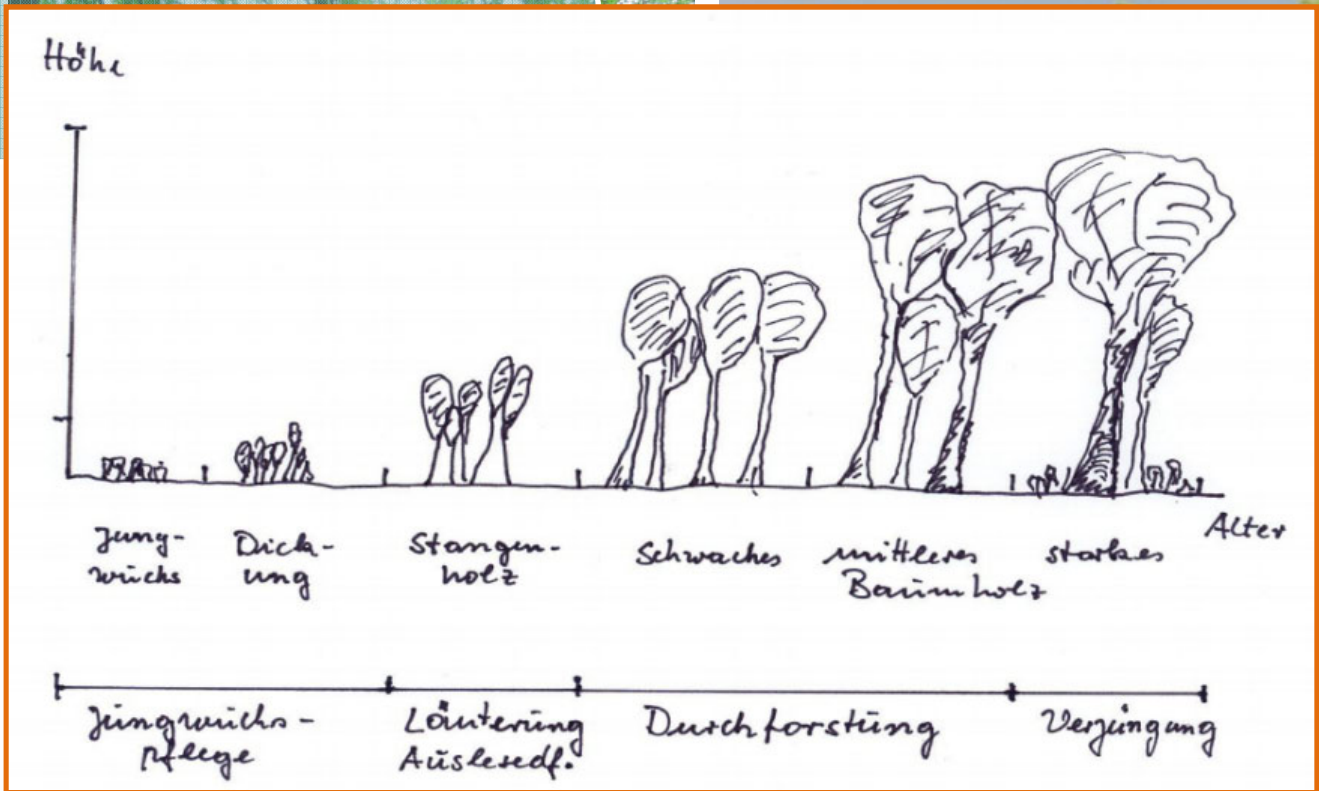 Höhe
Jung-
wuchs
Dick-
ung
Stangen-
holz
Schwaches
mittleres
Baumholz
starkes
Alter
Jungwuchs-
pflege
Läuterung
Auslesedf.
Durchforstung
Verjüngung